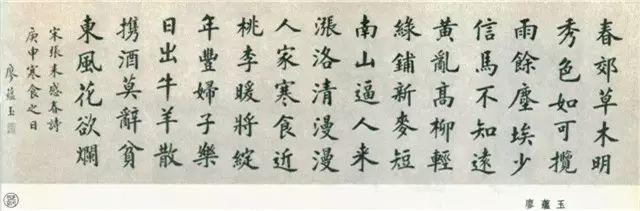 春郊草木明
秀色如可攬
雨餘塵埃少
信馬不知遠
黃亂高柳輕
綠鋪新麥短
南山逼人来
漲洛清漫漫
人家寒食近
桃李暖將綻
年豐婦子樂
日出牛羊散
攜酒莫辭貧
東風花欲爛
宋張耒感春詩
庚申寒食之日
廖蘊玉
廖蘊玉